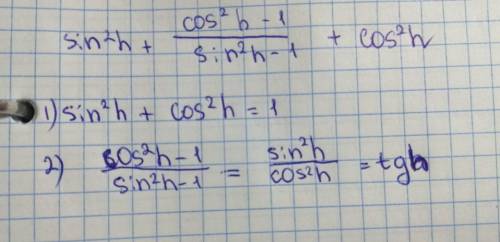 sin²h + (cos²h - 1)/(sin²h - 1) + cos²h
1) sin²h + cos²h = 1
2) (cos²h - 1)/(sin²h - 1) = sin²h/cos²h = tgh